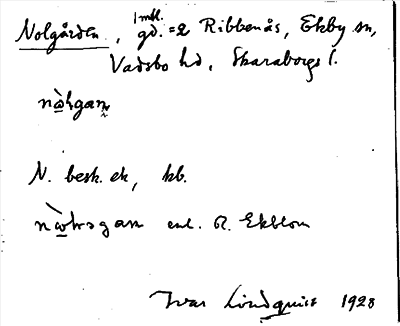 Nolgården, 1 mtl. gd. = 2 Ribbenås, Ekby sn,
Vadsbo hd, Skaraborgs l.
nàhgan
N. besk. ek, kb.
enl. R. Ekblom
Ivar Lindquist 1928